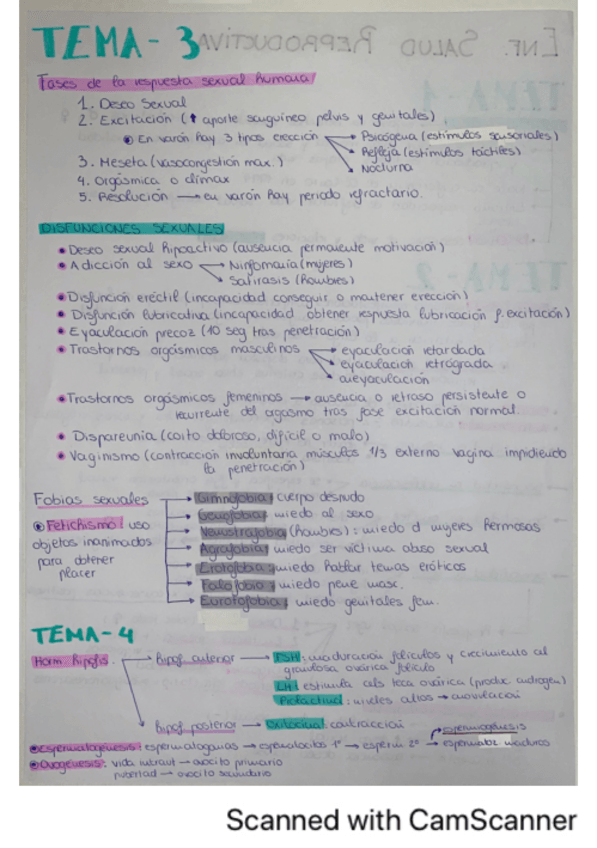 TEMA-3
ENF. SALUD REPRODUCTIVA
Fases de la respuesta sexual humana
1. Deseo Sexual
2. Excitación (↑ aporte sanguíneo pelvis y genitales).
En varón hay 3 tipos erección → Psicógena (estímulos sensoriales)
→ Refleja (estímulos táctiles)
→ Nocturna
3. Meseta (vasocongestión max.)
4. Orgásmica o clímax
5. Resolución → en varón hay periodo refractario.
DISFUNCIONES SEXUALES
• Deseo sexual hipoactivo (ausencia permanente motivación)
• Adicción al sexo → Ninfomanía (mujeres)
→ Satirasis (hombres)
• Disfunción eréctil (incapacidad conseguir o mantener erección)
• Disfunción lubricativa (incapacidad obtener respuesta lubricación f. excitación)
• Eyaculación precoz (10 seg tras penetración)
• Trastornos orgásmicos masculinos → eyaculación retardada
→ eyaculación retrógrada
→ aneyaculación
• Trastornos orgásmicos femeninos → ausencia o retraso persistente o
recurrente del orgasmo tras fase excitación normal.
• Dispareunia (coito doloroso, difícil o malo)
• Vaginismo (contracción involuntaria músculos 1/3 externo vagina impidiendo
la penetración)
Fobias sexuales → Gimnofobia: cuerpo desnudo
→ Genofobia: miedo al sexo
Fetichismo: uso
objetos inanimados
para obtener
placer
→ (hombres): miedo a mujeres hermosas
→ Agrafobia: miedo ser víctima abuso sexual
→ Erotofobia: miedo hablar temas eróticos
→ Falofobia: miedo pene masc.
→ Eurotofobia: miedo genitales fem.
TEMA-4
Horm. Hipofis. → Hipof. anterior → FSH: maduración folículos y crecimiento cel
granulosa ovárica folículo
LH: estimula cels teca ovárica (produc andrógen)
Prolactina: niveles altos → anovulación
→ Hipof. posterior → Oxitocina: contracción
espermiogénesis
Espermatogénesis: espermatogonias → espermatocitos 1º → esperm 2º → espermatoz maduros
Ovogénesis: vida intraut → ovocito primario
pubertad → ovocito secundario
Scanned with CamScanner